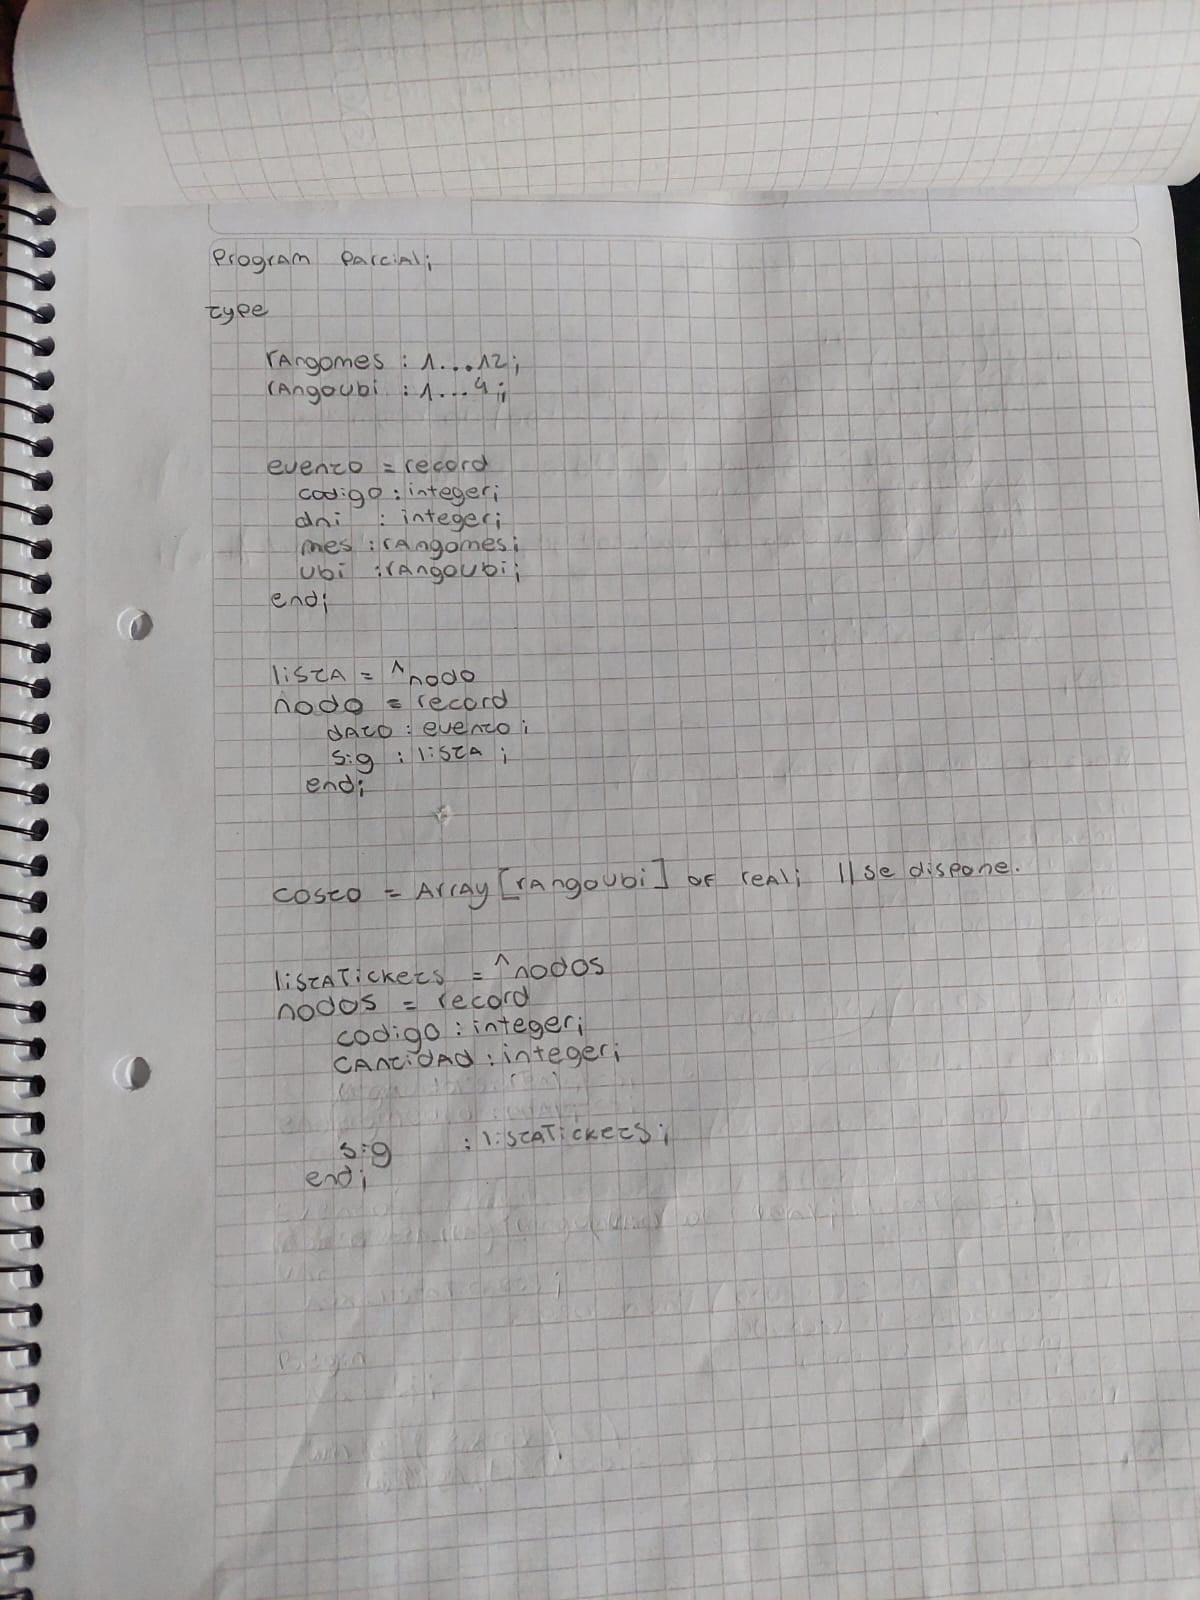 Program Parcial;
type
rangomes : 1...12;
rangoubi : 1...4;
evento = record
codigo : integer;
dni : integer;
mes : rangomes;
ubi : rangoubi;
end;
lista = ^nodo
nodo = record
dato : evento;
sig : lista ;
end;
costo = Array [rangoubi] of real; // se dispone.
listaTickets = ^nodos
nodos = record
codigo : integer;
cantidad : integer;
sig : listaTickets;
end;